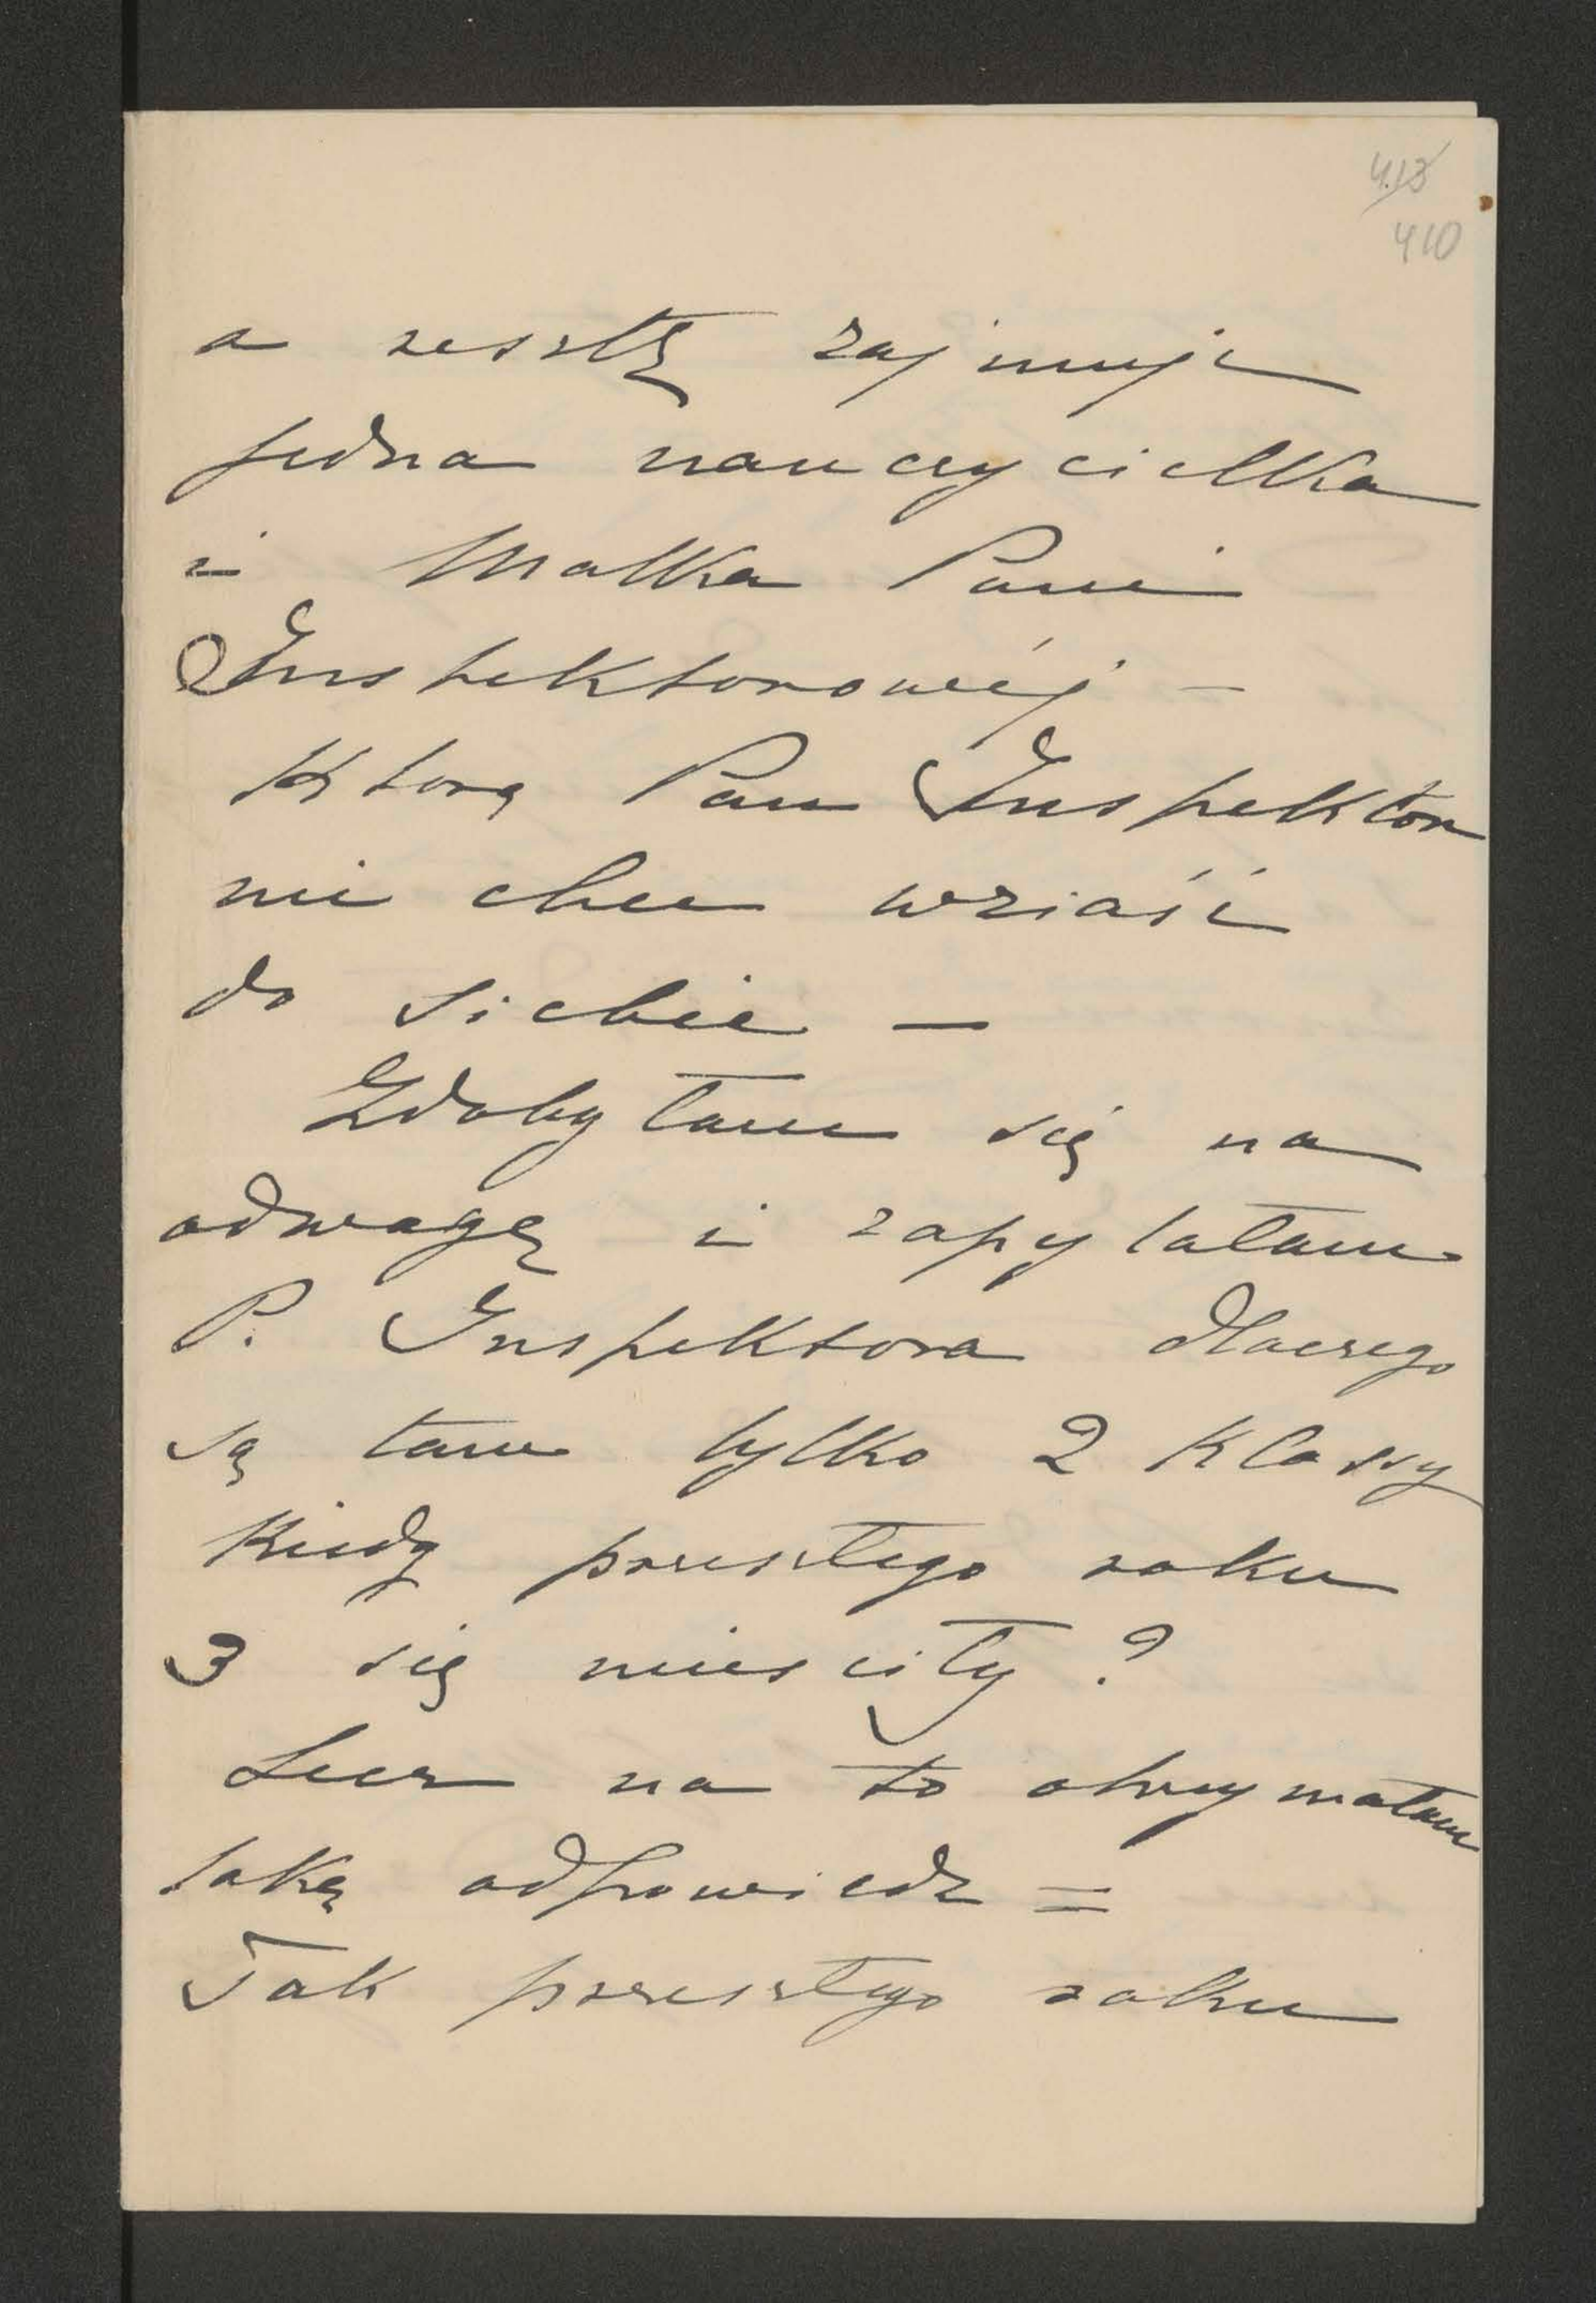 413
410
a resztę zajmuje
jedna nauczycielka
i Matka Pani
Inspektorowéj –
Ktorą Pan Inspektor
nie chce wziaść
do siebie –
Zdobyłam się na
odwagę i zapytałam
P. Inspektora dlaczego
są tam tylko 2 Klassy
Kiedy przeszłego roku
3 się miesciły?
Lecz na to otrzymałam
taką odpowiedz =
Tak przeszłego roku